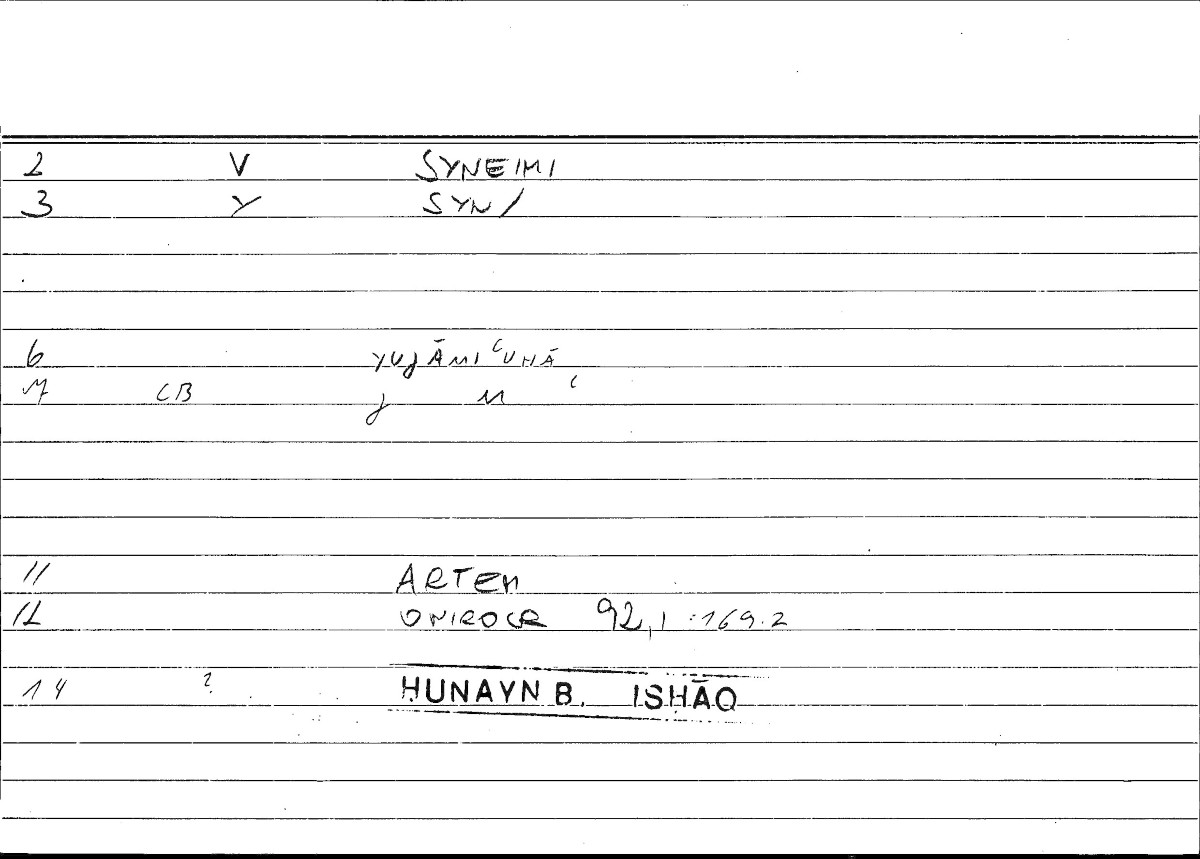 2 V SYNEIMI
3 Y SYN/
6 YUJĀMIʿUHĀ
7 CB J M ʿ
11 ARTEM
12 ONIROCR 92,1 :169.2
14 ? HUNAYN B. ISHĀQ